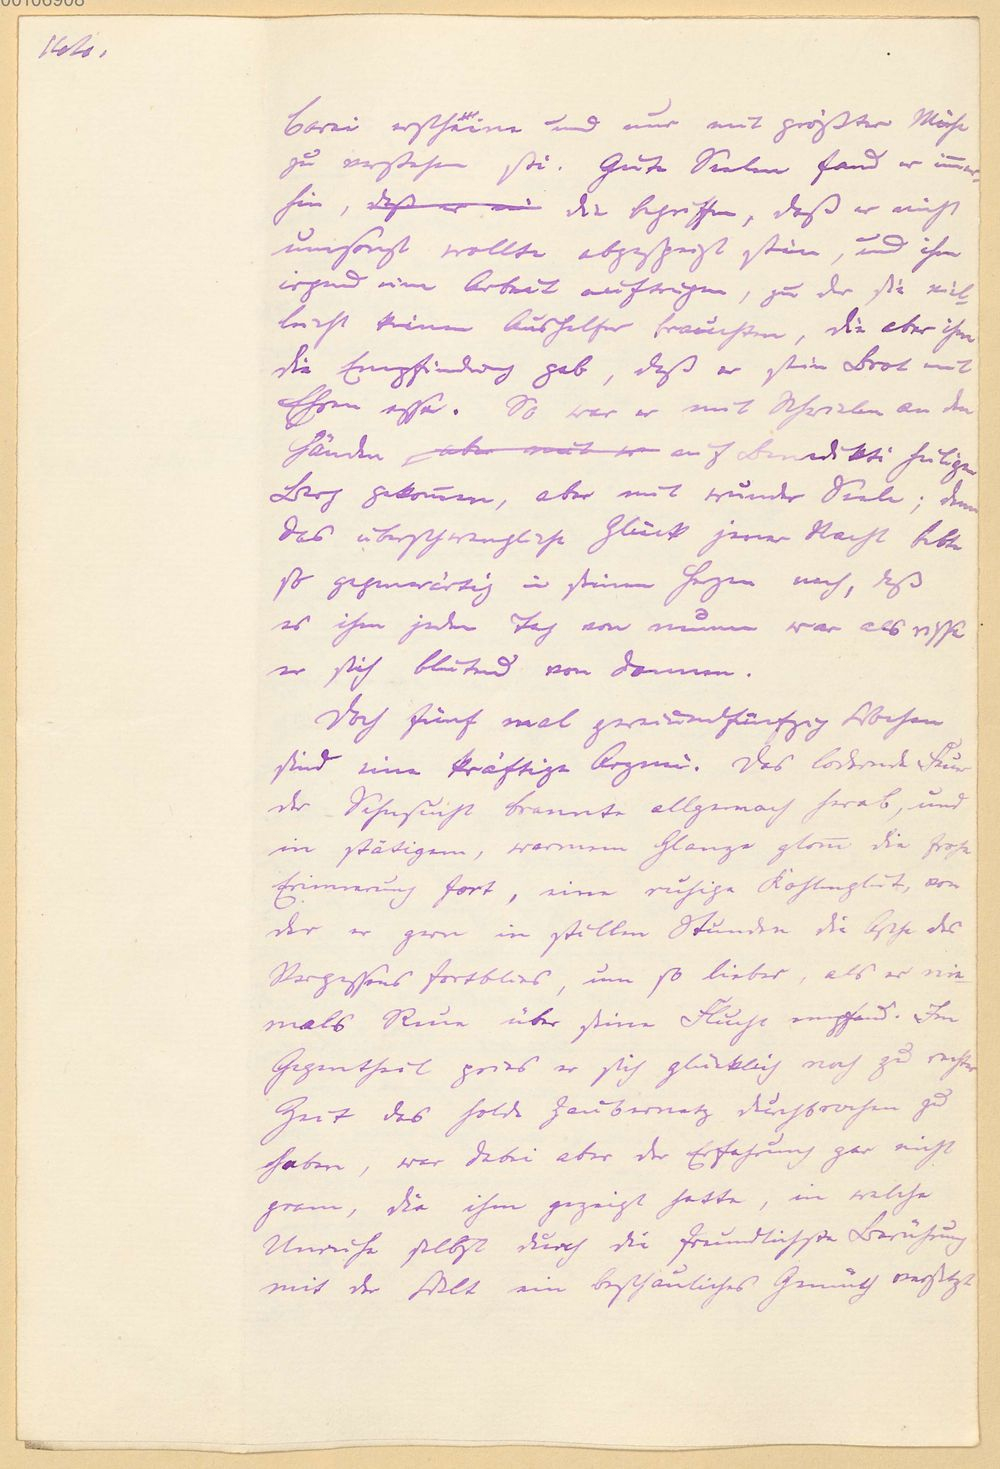 00106908
barei erscheine und nur mit größter Mühe
zu verstehen sei. Gute Seelen fand er im̅er-
hin, daß er ei die begriffen, daß er nicht
umsonst wollte abgespeist sein, und ihm
irgend eine Arbeit auftrugen, zu der sie viel-
leicht keinen Aushelfer brauchten, die aber ihm
die Empfindung gab, daß er sein Brot mit
Ehren esse. So war er mit Schwielen an den
Händen, aber mit er auf Benedikti heiligen
Berg gekom̅en, aber mit wunder Seele; denn
das überschwengliche Glück jener Nacht bebte
so gegenwärtig in seinem Herzen nach, daß
es ihm jeden Tag von neuem war als risse
er sich blutend von dannen.
Doch fünf mal zweiundfünfzig Wochen
sind eine kräftige Arznei. Das lodernde Feuer
der Sehnsucht brannte allgemach herab, und
in stätigem, warmem Glanze glom̅ die frohe
Erinnerung fort, eine ruhige Kohlenglut, von
der er gern in stillen Stunden die Asche des
Vergessens fortblies, um so lieber, als er nie-
mals Reue über seine Flucht empfand. Im
Gegentheil pries er sich glücklich noch zu rechter
Zeit das holde Zaubernetz durchbrochen zu
haben, war dabei aber der Erfahrung gar nicht
gram, die ihm gezeigt hatte, in welche
Unruhe selbst durch die freundlichste Berührung
mit der Welt ein beschauliches Gemüth versetzt